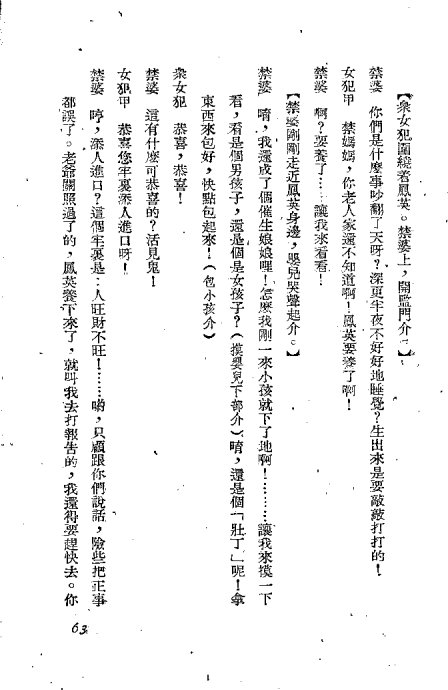 【衆女犯圍繞着鳳英。禁婆上，開監門介。】
禁婆　你們是什麼事吵翻了天呀？深更半夜不好好地睡覺？生出來是要敲敲打打的！
女犯甲　禁媽媽，你老人家還不知道啊！鳳英要養了啊！
禁婆　啊？要養了……讓我來看看！
【禁婆剛剛走近鳳英身邊，嬰兒哭聲起介。】
禁婆　唷，我還成了個催生娘娘哩！怎麽我剛一來小孩就下了地啊！………讓我來摸一下
看，看是個男孩子，還是個是女孩子？（摸嬰兒下部介）唷，還是個「壯丁」呢！拿
東西來包好，快點包起來！（包小孩介）
衆女犯　恭喜，恭喜！
禁婆　這有什麼可恭喜的？活見鬼！
女犯甲　恭喜您牢裏添人進口呀！
禁婆　哼，添人進口？這個牢裏是：人旺財不旺！……喲，只顧跟你們說話，險些把正事
都誤了。老爺關照過了的，鳳英養下來了，就叫我去打報告的，我還得要趕快去。你
63